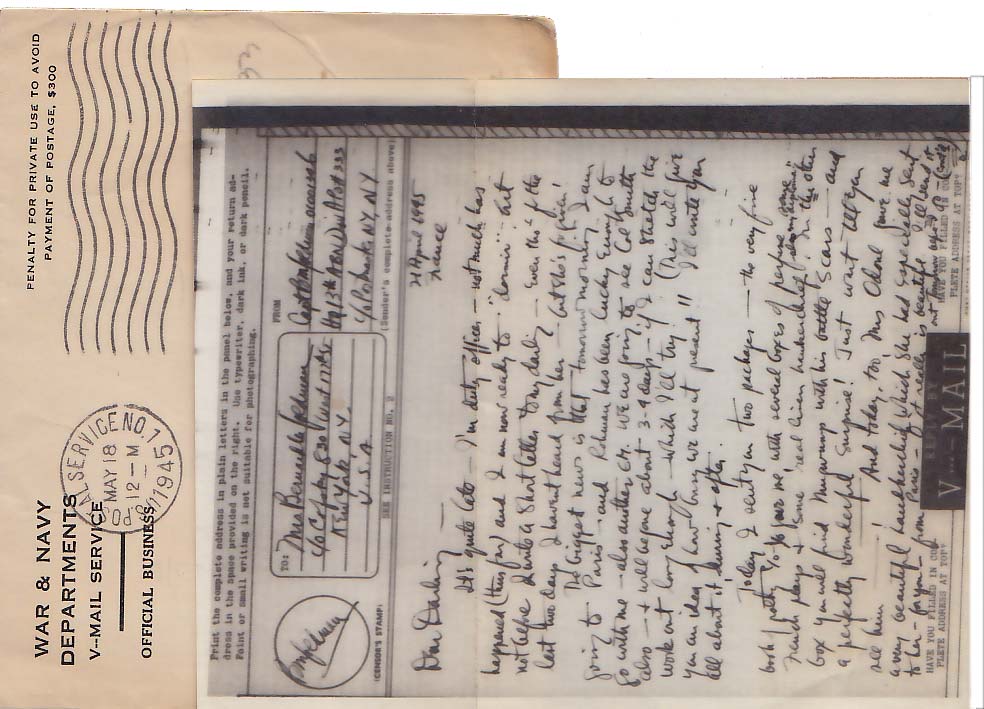 PENALTY FOR PRIVATE USE TO AVOID
PAYMENT OF POSTAGE, $300
WAR & NAVY
DEPARTMENTS
V--MAIL SERVICE
OFFICIAL BUSINESS
POSTAL SERVICE NO. 1
MAY 18
12-M
1945
Print the complete address in plain letters in the panel below, and your return ad-
dress in the space provided on the right. Use typewriter, dark ink, or dark pencil.
Faint or small writing is not suitable for photographing.
TO:
Mrs Bernard
New York N.Y.
U.S.A
FROM
Capt
Hq 13th Abn Div APO 333
c/o Postmaster, NY, NY
(CENSOR'S STAMP)
SEE INSTRUCTION NO. 2
(Sender's complete address above)
21 April 1945
France
Dear Darling
It's quite late - I'm duty officer - not much has
happened (thus far) and I am now ready to but
not before I write a short letter to my darling - Even tho' for the
last two days I haven't heard from her - but she's forgiven!
The biggest news is that tomorrow morning I am
going to Paris!! - and has been lucky enough to
go with me - also another Lt. We are going to see Col Smith
also - & will be gone about 3-4 days - if I can stretch the
work out long enough - which I'll try! (This will give
you an idea of how busy we are at present!! I'll write you
all about it during & after.
Today I sent you two packages - the very fine
book with several boxes of perfume some
French plays & some real linen handkerchief In the other
box you will find with his battle scars - and
a perfectly wonderful surprise! Just wait till you
see him! And today, too, Mrs gave me
a very beautiful handkerchief which she had especially sent
to her - for you - from Paris - it really is beautiful I'll send it
out tomorrow
HAVE YOU FILLED IN COM-
PLETE ADDRESS AT TOP?
V MAIL
HAVE YOU FILLED IN COM-
PLETE ADDRESS AT TOP?